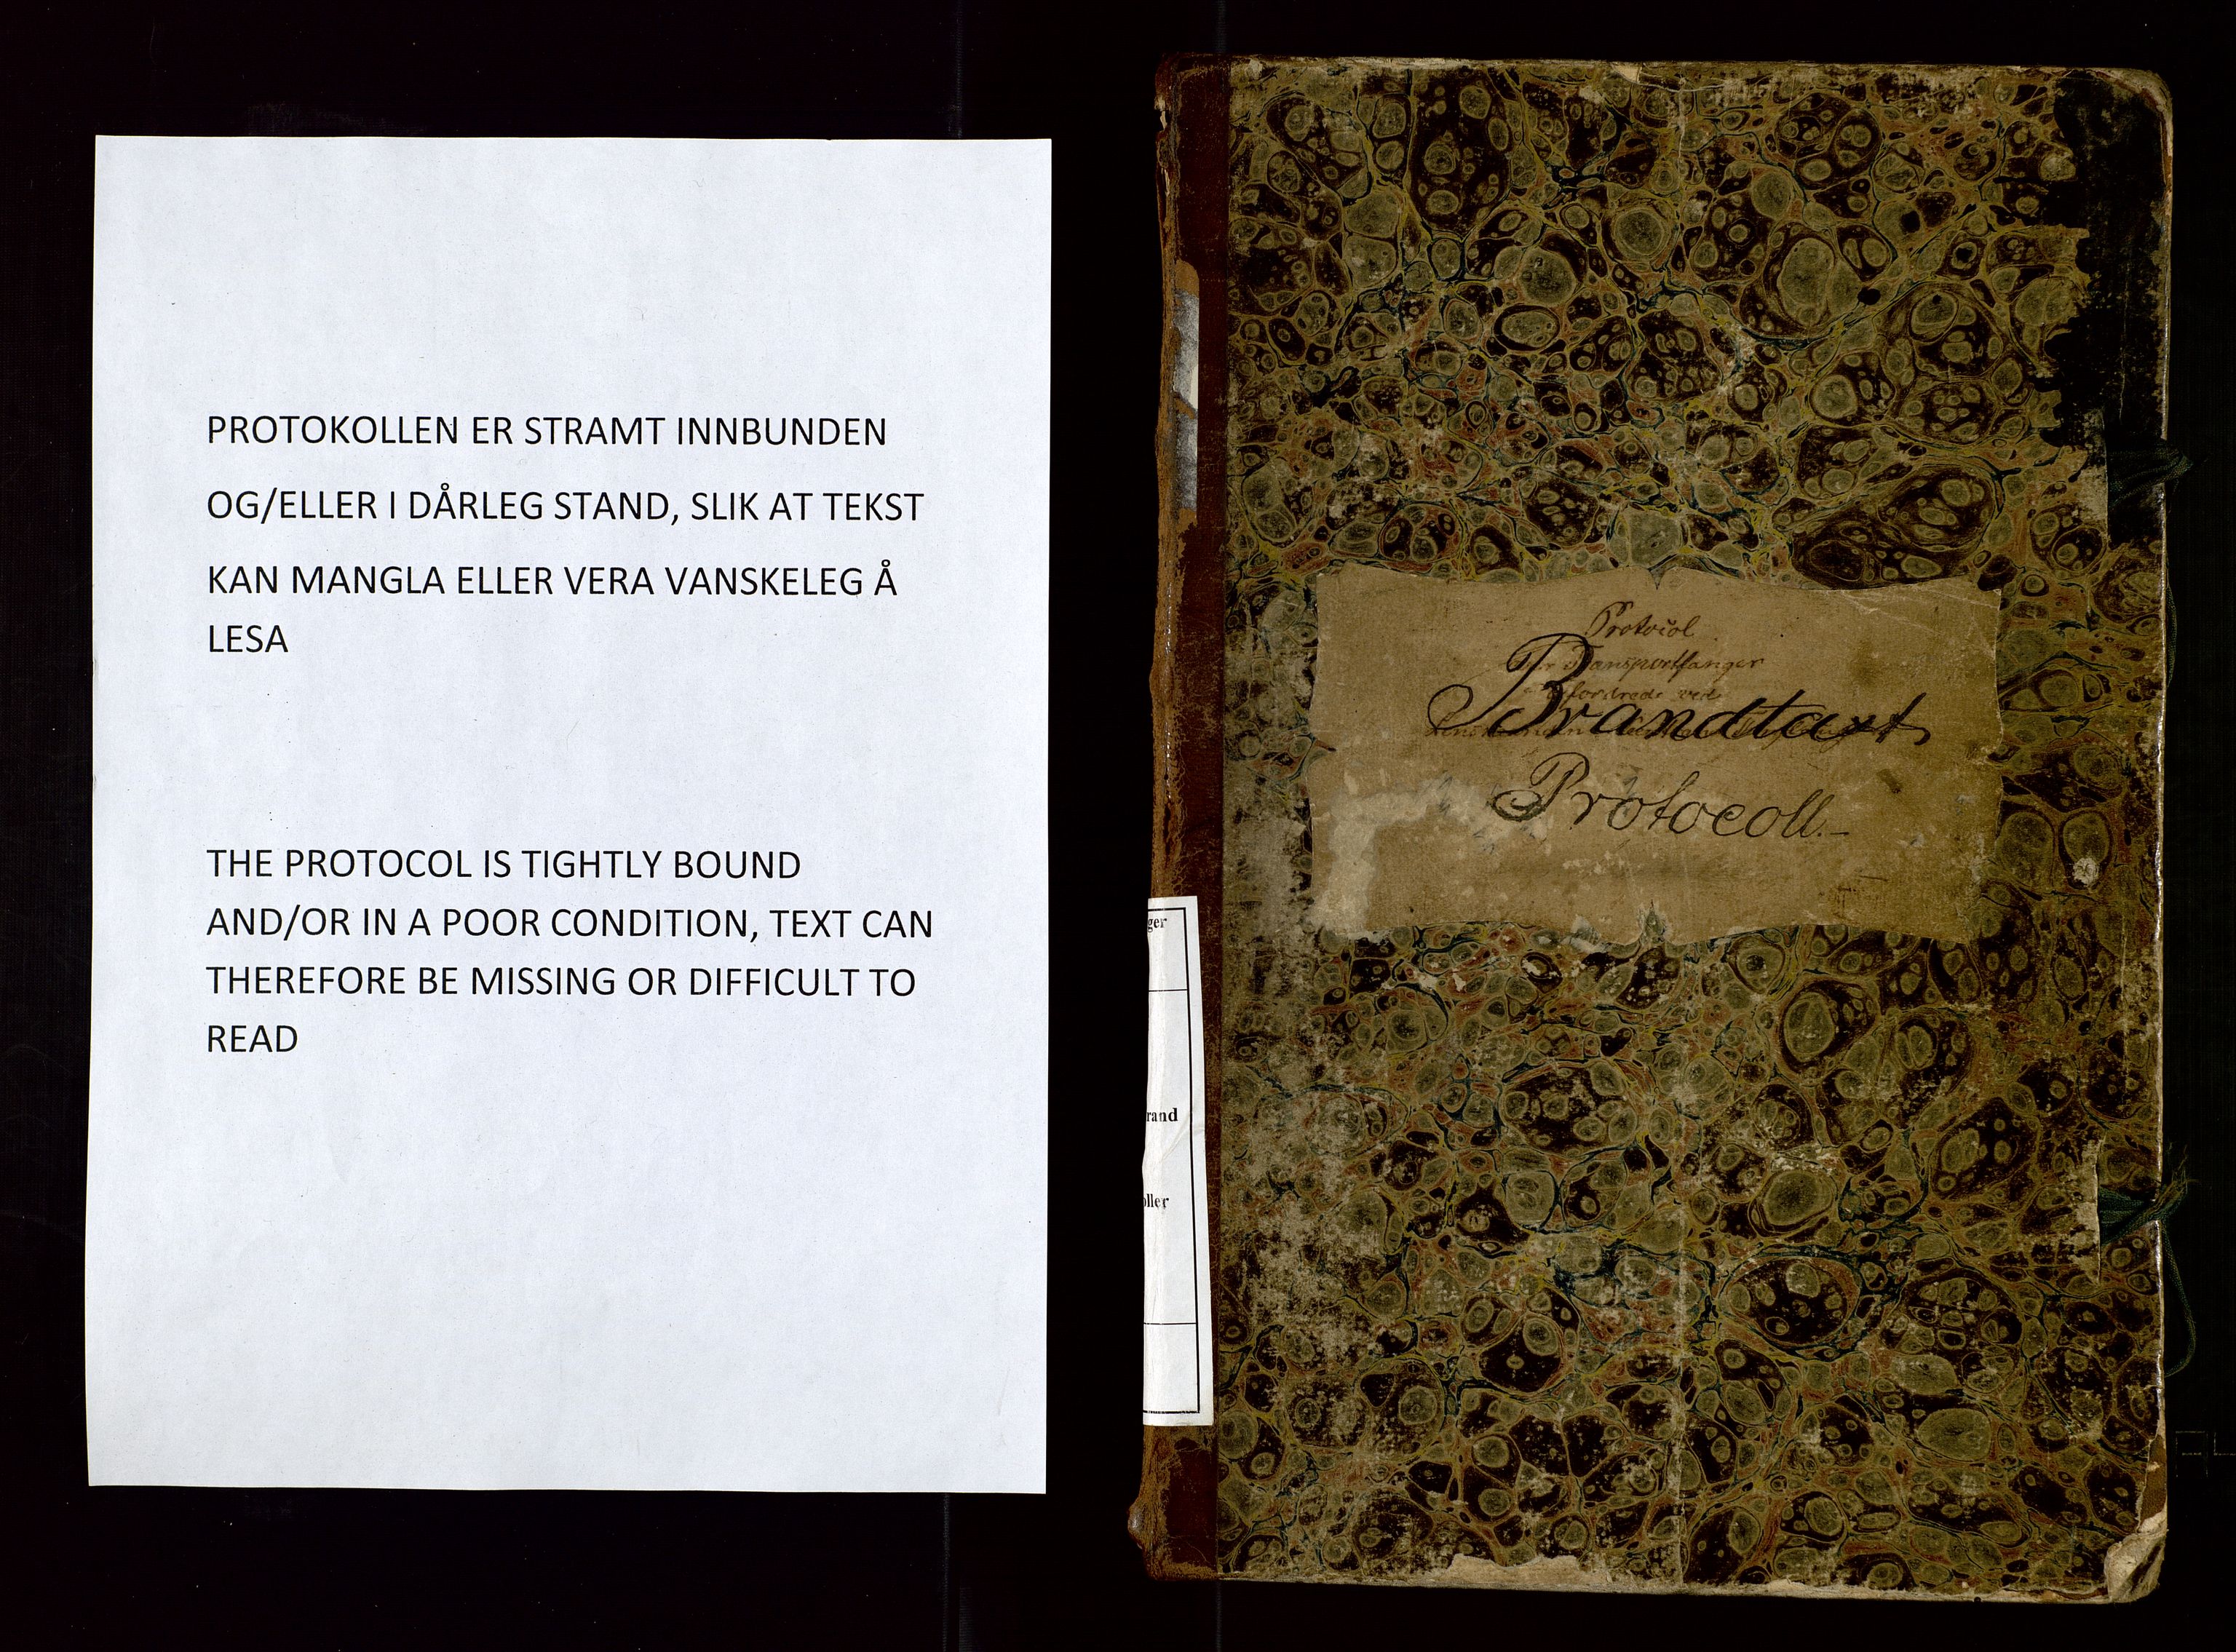 PROTOKOLLEN ER STRAMT INNBUNDEN
OG/ELLER I DÅRLEG STAND, SLIK AT TEKST
KAN MANGLA ELLER VERA VANSKELEG Å
LESA
THE PROTOCOL IS TIGHTLY BOUND
AND/OR IN A POOR CONDITION, TEXT CAN
THEREFORE BE MISSING OR DIFFICULT TO
READ
Protocol
Transportfanger
ved
Brandtaxt
Protocoll.-
ger
rand
oller